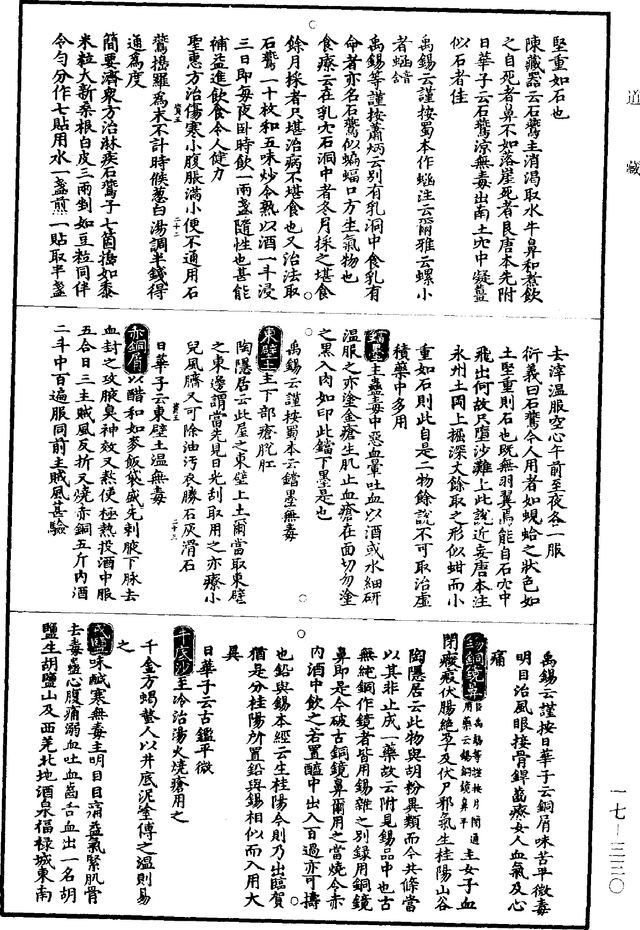 道藏
堅重如石也
陳藏器云石鷰主消渴取水牛鼻和煮飲
之自死者鼻不如落崖死者良唐本先附
日華子云石鷰涼無毒出南土穴中凝薑
似石者佳
禹錫云謹按蜀本作蝛注云爾雅云螺小
者蝛蛤
禹錫等謹按蕭炳云別有乳洞中食乳有
命者亦名石鷰似蝙蝠口方生氣物也
食療云在乳穴石洞中者冬月採之堪食
餘月採者只堪治病不堪食也又治法取
石鷰二十枚和五味炒令熟以酒一斗浸
三日即每夜臥時飲一兩盞隨性也甚能
補益進飲食令人健力
聖惠方治傷寒小腹脹滿小便不通用石
鷰搗羅為末不計時候蔥白湯調半錢得
通為度
簡要濟眾方治淋疾石鷰子七箇搗如黍
米粒大新桑根白皮三兩剉如豆粒同伴
令勻分作七貼用水一盞煎一貼取半盞
去滓溫服空心午前至夜各一服
衍義曰石鷰今人用者如蜆蛤之狀色如
土堅重則石也既無羽翼焉能自石穴中
飛出何故只墮沙灘上此說近妄唐本注
永州土岡上掘深丈餘取之形似蚶而小
重如石則此自是二物餘說不可取治虛
積藥中多用
鐺墨主蠱毒中惡血暈吐血以酒或水細研
溫服之亦塗金瘡生肌止血瘡在面切勿塗
之黑入肉如印此鐺下墨是也
禹錫云謹按蜀本云鐺墨無毒
東壁土主下部瘡脫肛
陶隱居云此屋之東壁上土爾當取東壁
之東邊謂當先見日光刮取用之亦療小
兒風臍又可除油污衣勝石灰滑石
日華子云東壁土溫無毒
赤銅屑以醋和如麥飯袋盛先刺腋下脉去
血封之攻腋臭神效又熬使極熱投酒中服
五合日三主賊風反折又燒赤銅五斤內酒
二斗中百遍服同前主賊風甚驗
禹錫云謹按日華子云銅屑味苦平微毒
明目治風眼接骨銲齒療女人血氣及心
痛
錫銅鏡鼻臣禹錫等謹按月閉通用藥云錫銅鏡鼻平主女子血
閉癥瘕伏腸絕孕及伏尸邪氣生桂陽山谷
陶隱居云此物與胡粉異類而今共條當
以其非止成一藥故云附見錫品中也古
無純銅作鏡者皆用錫雜之別錄用銅鏡
鼻即是今破古銅鏡鼻爾用之當燒令赤
內酒中飲之若置醯中出入百過亦可擣
也鉛與錫本經云生桂陽今則乃出臨賀
猶是分桂陽所置鉛與錫相似而入用大
異
日華子云古鑑平微
千金方蝎螫人以井底泥塗傅之溫則易
之
戎鹽味鹹寒無毒主明目目痛益氣緊肌骨
去毒蠱心腹痛溺血吐血齒舌血出一名胡
鹽生胡鹽山及西羌北地酒泉福祿城東南
一七–三三〇